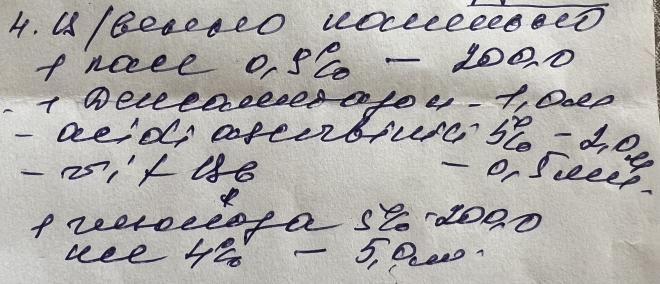 4. В/венно капельно
+ NaCl 0,9% – 200,0
+ Дексаметазон – 1,0 мл
– acidi ascorbinici 5% – 2,0 мл
– vit B6 – 0,5 мл.
+ глюкоза 5% – 200,0
KCl 4% – 5,0 мл.